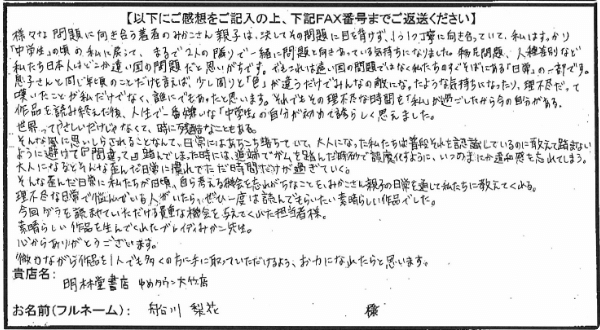 【以下にご感想をご記入の上、下記FAX番号までご返送ください】
様々な問題に向き合う著者のみかこさん親子は、決してその問題に目を背けず、1つ1つ丁寧に向き合っていて、私はすっかり
「中学生」の頃の私に戻って、まるで2人の隣りで一緒に問題と向きあっている気持ちになりました。 物売問題、人種差別など
私たち日本人はどこか遠い国の問題だと思いがちです。でもこれは遠い国の問題ではなく私たちのすぐそばにある「日常」の一部です。
息子さんと同じ年頃のことだけを言えば、少し周りと「色」が違うだけでみんなの敵になったような気持ちになったり、理不尽だって
嘆いたことが私だけでなく、誰にでもあったと思います。それでもその理不尽な時間を「私」が過ごしたから今の自分がある。
作品を読み終えた後、人生で一番嫌いな「中学生」の自分が初めて誇らしく思えました。
世界ってやさしいだけじゃなくて、時に残酷なこともある。
そんな風に思いしらされることなんて、日常にはあちこち落ちていて、大人になった私たちは普段それを認識しているのに敢えて踏まない
ように避けて『間違って』踏んでしまった時には、道端でガムを踏んだ時の様で誤魔化すように、いつのまにか違和感を忘れてしまう。
大人になるとそんな歪んだ日常に慣れてただ時間だけが過ぎていく。
そんな歪んだ日常に私たちが日頃、自ら考える機会を忘れがちなことを、みかこさん親子の日常を通して私たちに教えてくれる。
理不尽な日常で悩んでいる人がいたら、ぜひ一度は読んでもらいたい素晴らしい作品でした。
今回ゲラを読ませていただける貴重な機会を与えてくれた担当者様。
素晴らしい作品を生んでくれたブレイディみかこ先生。
心からありがとうございます。
微力ながら作品を1人でも多くの方に手に取っていただけるよう、お力になれたらと思います。
貴店名：
明林堂書店 ゆめタウン大竹店
お名前(フルネーム)： 船川 梨花 様